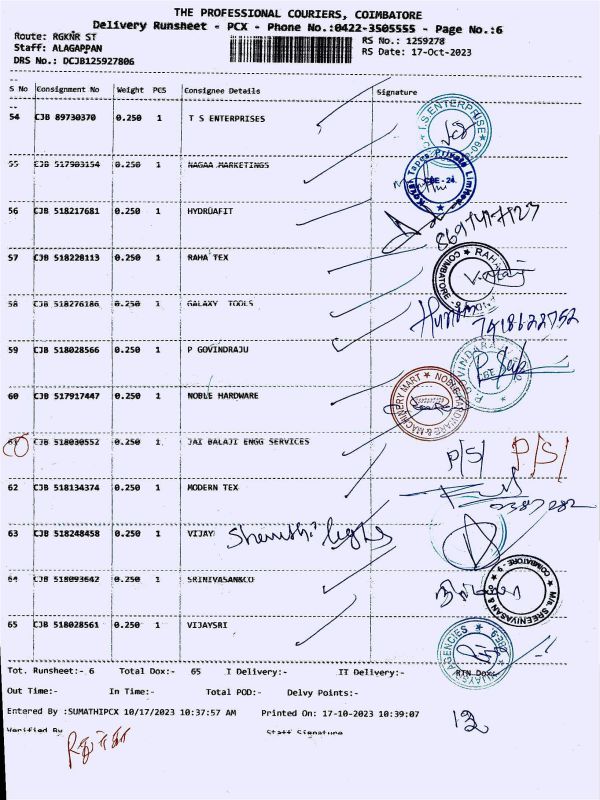 THE PROFESSIONAL COURIERS, COIMBATORE
Delivery Runsheet - PCX - Phone No.:0422-3505555 - Page No.:6
Route: RGKNR ST
RS No.: 1259278
Staff: ALAGAPPAN
RS Date: 17-Oct-2023
DRS No.: DCJB125927806
S No Consignment No Weight PCS Consignee Details Signature
54 CJB 89730370 0.250 1 T S ENTERPRISES
55 CJB 517903154 0.250 1 NAGAA MARKETINGS
56 CJB 518217681 0.250 1 HYDRUAFIT
57 CJB 518228113 0.250 1 RAHA TEX
58 CJB 518276186 0.250 1 GALAXY TOOLS
7418622752
59 CJB 518028566 0.250 1 P GOVINDRAJU
60 CJB 517917447 0.250 1 NOBLE HARDWARE
NOBLE HARDWARE & MACHINERY MART
61 CJB 518030552 0.250 1 JAI BALAJI ENGG SERVICES
P/S/ P/S/
62 CJB 518134374 0.250 1 MODERN TEX
63 CJB 518248458 0.250 1 VIJAY
64 CJB 518093642 0.250 1 SRINIVASAN&CO
65 CJB 518028561 0.250 1 VIJAYSRI
Tot. Runsheet:- 6 Total Dox:- 65 I Delivery:- II Delivery:- RTN Dox:
Out Time:- In Time:- Total POD:- Delvy Points:-
Entered By :SUMATHIPCX 10/17/2023 10:37:57 AM Printed On: 17-10-2023 10:39:07
12
Verified By Staff Signature